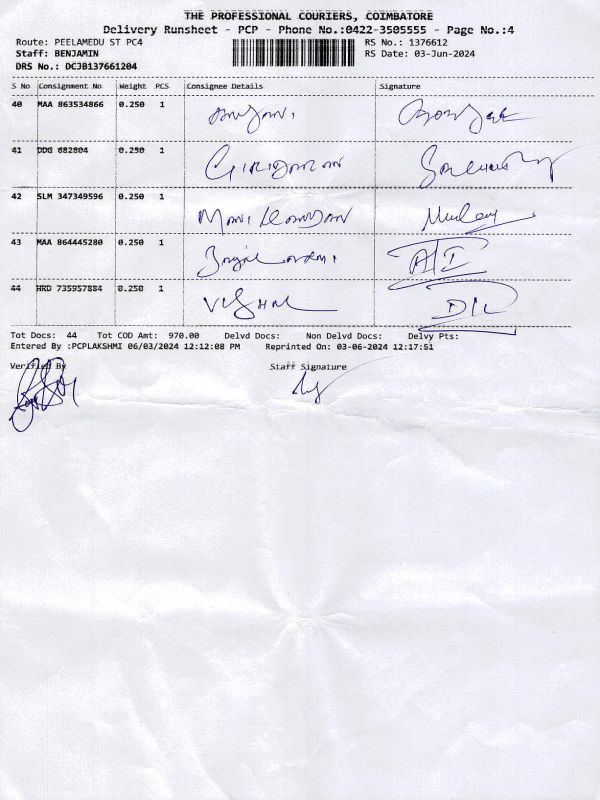 THE PROFESSIONAL COURIERS, COIMBATORE
Delivery Runsheet - PCP - Phone No.:0422-3505555 - Page No.:4
Route: PEELAMEDU ST PC4 RS No.: 1376612
Staff: BENJAMIN RS Date: 03-Jun-2024
DRS No.: DCJB137661204
S No Consignment No Weight PCS Consignee Details Signature
40 MAA 863534866 0.250 1
41 DDG 682804 0.250 1 GIRIDARAN
42 SLM 347349596 0.250 1 MANIKANDAN
43 MAA 864445280 0.250 1
44 HRD 735957884 0.250 1 VISHNU
Tot Docs: 44 Tot COD Amt: 970.00 Delvd Docs: Non Delvd Docs: Delvy Pts:
Entered By :PCPLAKSHMI 06/03/2024 12:12:08 PM Reprinted On: 03-06-2024 12:17:51
Verified By Staff Signature